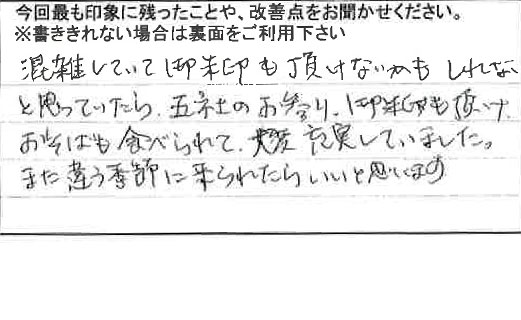 今回最も印象に残ったことや、改善点をお聞かせください。
※書ききれない場合は裏面をご利用下さい
混雑していて御朱印も頂けないかもしれない
と思っていたら、五社のお参り、御朱印も頂け、
おそばも食べられて、大変充実していました。
また違う季節に来られたらいいと思います